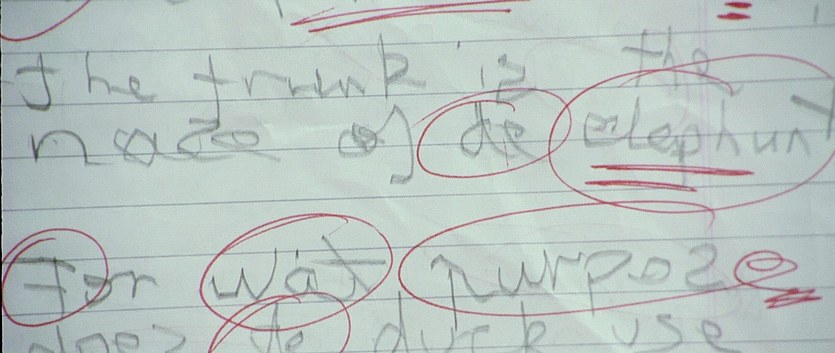 The trunk is the
noze of de elephunt
For wat purpose
does de duck use